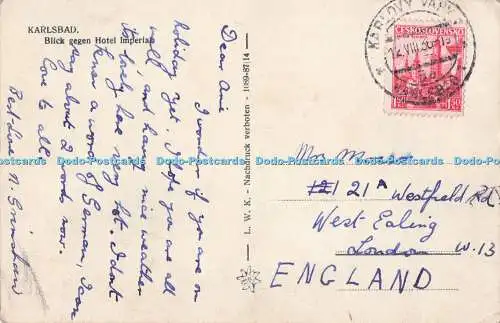 KARLSBAD.
Blick gegen Hotel Imperial.
Dear
I wonder if you are on
holiday yet. I hope you are all
well, and having nice weather
Its lovely here very hot. I dont
know a word of German, I can
say about 2 words now.
Love to all
Best Love N.
L. W. K. - Nachdruck verboten - 1089-87:14
KARLOVY VARY
VIII.30
ČESKOSLOVENSKO
21A Westfield Rd.
West Ealing
London W.13
ENGLAND
Dodo-Postcards Dodo-Postcards Dodo-Postcards Dodo-Postcards Dodo-Postcards Dodo-Postcards Dodo-Postcards